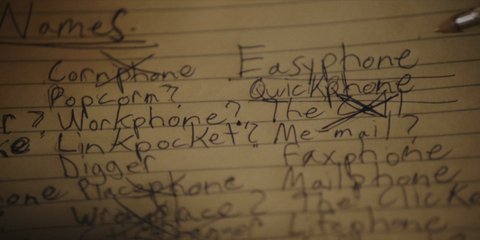 Names.
Cornphone
Popcorn?
? Workphone?
Linkpocket?
Digger
Placephone
Easyphone
Quickphone
The
Me-mail?
Faxphone
Mailphone
The Clicke
Lifephone